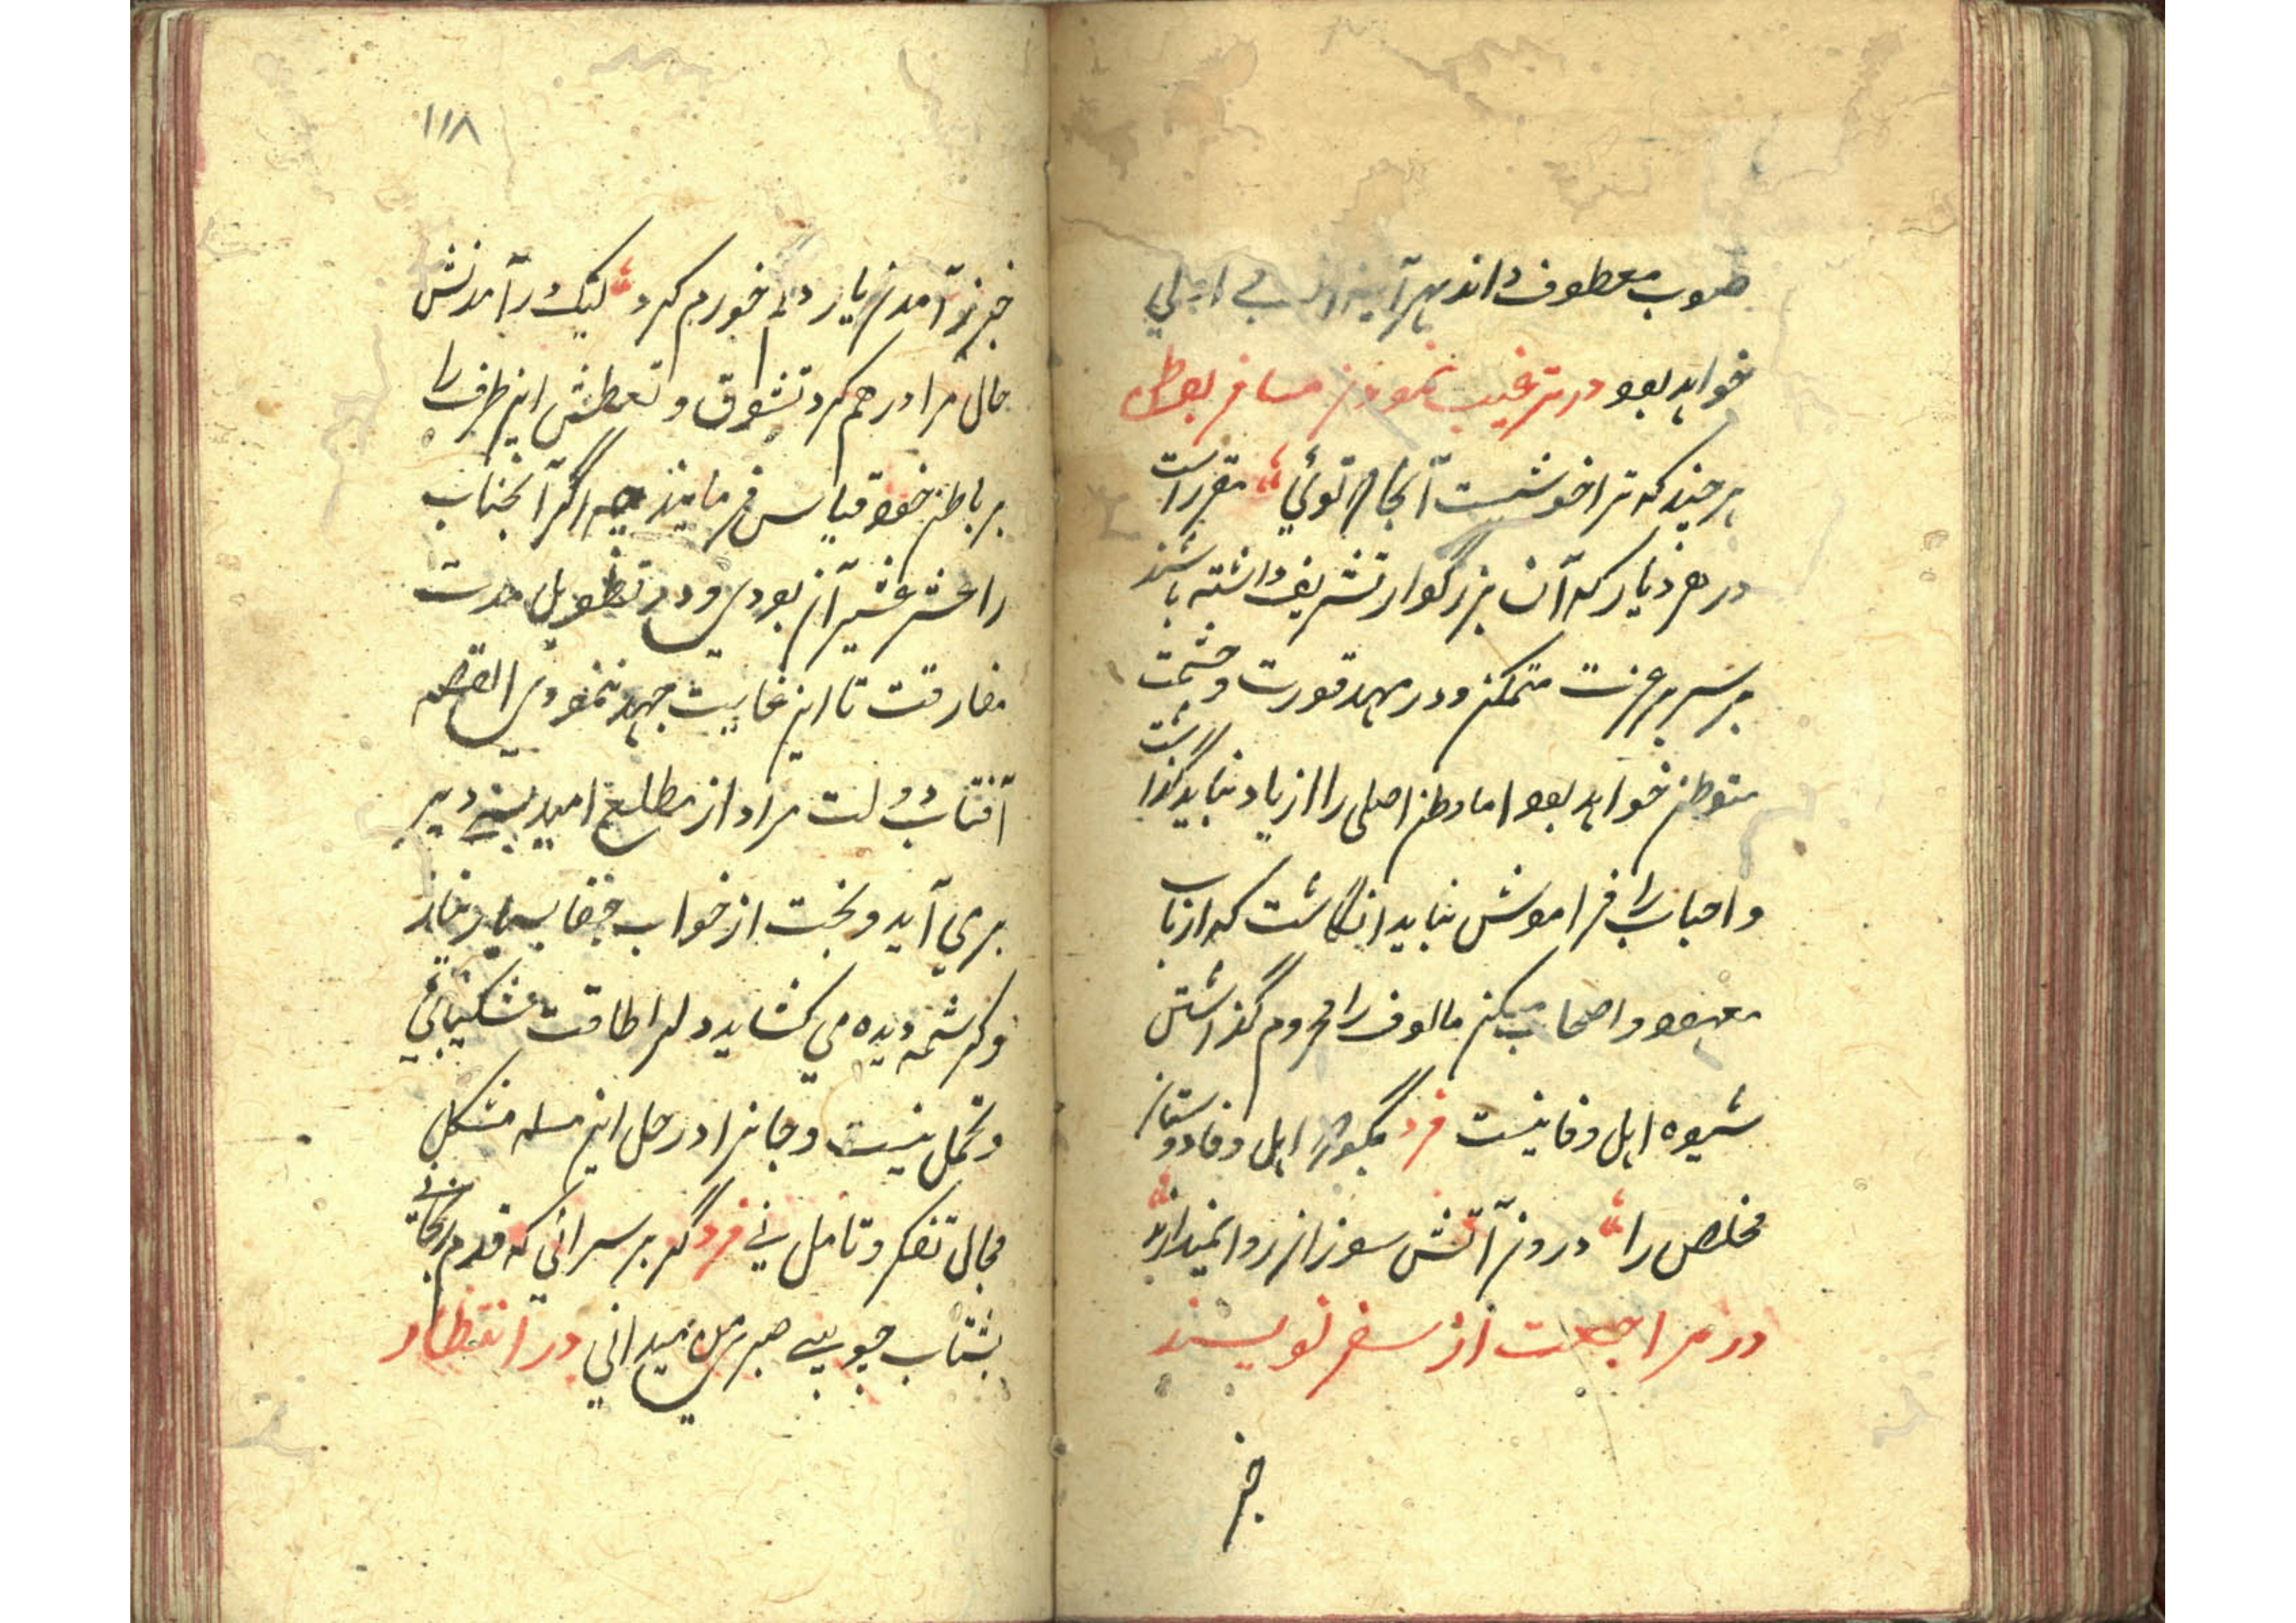 صوب معطوف داند هرآینه از بی اجلی
خواهد بود در ترغیب نمودن مسافر بوطن
هر چند که ترا خوشیست آنجا که توئی مقرر است
در هر دیار که آن بزرگوار تشریف داشته باشند
بر سریر عزت متمکن و در مهد قدرت و حشمت
متوطن خواهد بود اما وطن اصلی را از یاد نباید گذاشت
و احباب را فراموش نباید انگاشت که ارباب
معهود و اصحاب مالوف را محروم گذاشتن
شیوه اهل وفا نیست فرد بگو اهل وفا دوستان
مخلص را در درون آتش سوزان روا نمیدارند
در مراجعت از سفر نویسند
خبر
۱۱۸
خبر از آمدن یار دلم خورم کرد لیک در آمدنش
حال مرا درهم کرد تشوق و تعطش این طرف را
بر باطن خود قیاس فرمایند چه اگر آنجناب
را عشر عشیر آن بودی در تطویل مدت
مفارقت تا این غایت جهد ننمودی القصه
آفتاب دولت مراد از مطلع امید بسی دیر
بر می آید و بخت از خواب جفا بسیار بناز
و کرشمه دیده می کشاید دلرا طاقت شکیبائی
و تحمل نیست و جانرا در حل این مسله مشکل
مجال تفکر و تامل نی فرد گر بر سرائی که قدم رنجانی
بشتاب چو بی صبریِ من میدانی در انتظار